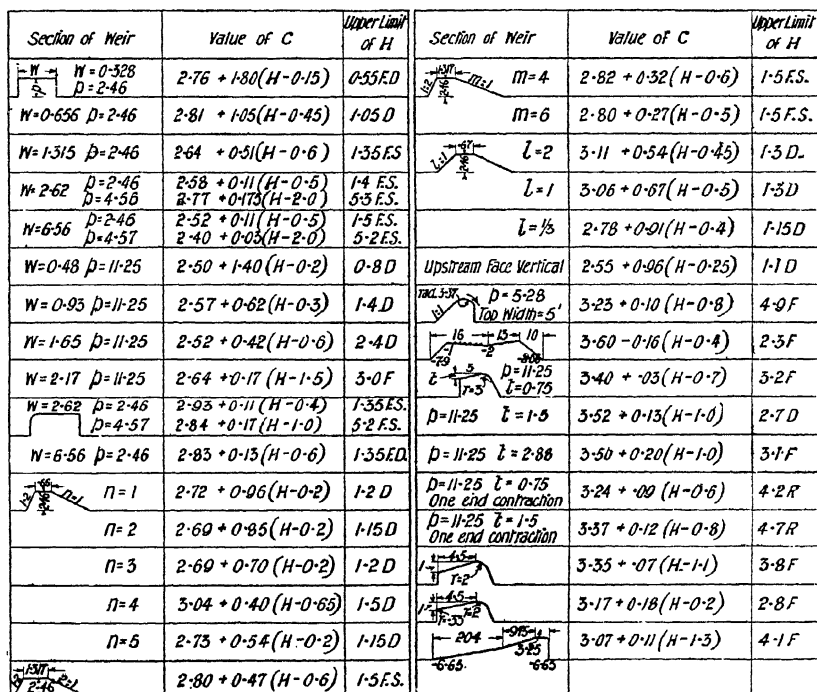 Section of Weir Value of C Upper Limit of H
W W=0·328 p p=2·46 2·76 + 1·80(H-0·15) 0·55F.D
W=0·656 p=2·46 2·81 + 1·05(H-0·45) 1·05 D
W=1·315 p=2·46 2·64 + 0·51(H-0·6) 1·35F.S
W=2·62 p=2·46 2·58 + 0·11(H-0·5) 1·4 F.S.
p=4·56 2·77 + 0·173(H-2·0) 5·3 F.S.
W=6·56 p=2·46 2·52 + 0·11(H-0·5) 1·5 F.S.
p=4·57 2·40 + 0·03(H-2·0) 5·2 F.S.
W=0·48 p=11·25 2·50 + 1·40(H-0·2) 0·8 D
W=0·93 p=11·25 2·57 + 0·62(H-0·3) 1·4 D
W=1·65 p=11·25 2·52 + 0·42(H-0·6) 2·4 D
W=2·17 p=11·25 2·64 + 0·17(H-1·5) 3·0 F
W=2·62 p=2·46 2·93 + 0·11(H-0·4) 1·35F.S.
p=4·57 2·84 + 0·17(H-1·0) 5·2 F.S.
W=6·56 p=2·46 2·83 + 0·13(H-0·6) 1·35F.D.
·66 2·46 n:1 n=1 2·72 + 0·96(H-0·2) 1·2 D
n=2 2·69 + 0·85(H-0·2) 1·15D
n=3 2·69 + 0·70(H-0·2) 1·2 D
n=4 3·04 + 0·40(H-0·65) 1·5 D
n=5 2·73 + 0·54(H-0·2) 1·15D
1·317 2·46 2·80 + 0·47(H-0·6) 1·5F.S.
Section of Weir Value of C Upper Limit of H
1:2 2·46 m:1 m=4 2·82 + 0·32(H-0·6) 1·5F.S.
m=6 2·80 + 0·27(H-0·5) 1·5 F.S.
l:1 ·67 2·46 l=2 3·11 + 0·54(H-0·45) 1·3 D.
l=1 3·06 + 0·67(H-0·5) 1·3D
l=⅓ 2·78 + 0·91(H-0·4) 1·15D
Upstream Face Vertical 2·55 + 0·96(H-0·25) 1·1 D
rad. 3·37 1:1 p=5·28 Top Width=5' 3·23 + 0·10(H-0·8) 4·9F
16 13 10 -7·9 -2 3·60 -0·16(H-0·4) 2·3F
t 3 r=3 p=11·25 t=0·75 3·40 + ·03(H-0·7) 3·2F
p=11·25 t=1·5 3·52 + 0·13(H-1·0) 2·7 D
p=11·25 t=2·88 3·50 + 0·20(H-1·0) 3·1F
p=11·25 t=0·75 One end contraction 3·24 + ·09 (H-0·6) 4·2 R
p=11·25 t=1·5 One end contraction 3·37 + 0·12 (H-0·8) 4·7R
1 4·5 r=2 3·35 + ·07(H-1·1) 3·8F
1 4·5 r=·33 r=2 3·17 + 0·18(H-0·2) 2·8 F
204 ·915 3·25 -6·65 -6·65 3·07 + 0·11(H-1·3) 4·1 F